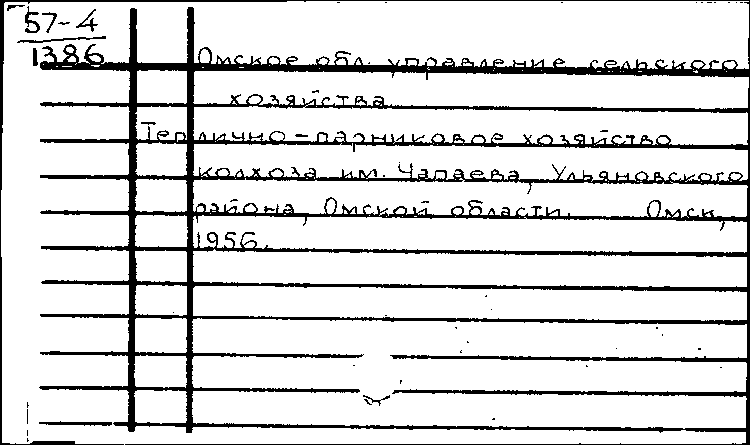 57-4
1386
Омское обл. управление сельского
хозяйства
Теплично-парниковое хозяйство
колхоза им. Чапаева, Ульяновского
района, Омской области. Омск,
1956.